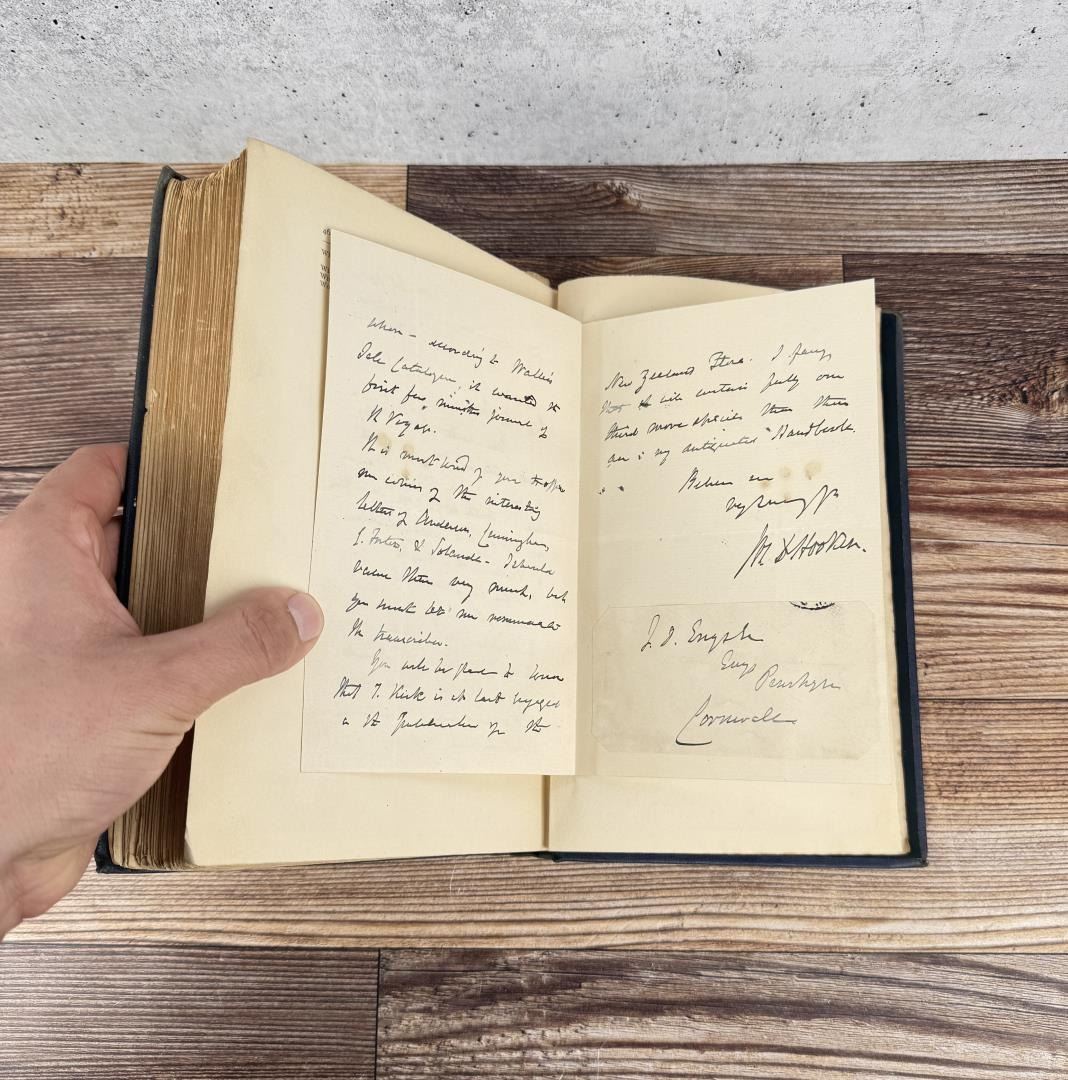 when - according to Wallis's
Sale Catalogue, it wanted the
first few months journal of
the Voyage.
It is most kind of you to offer
me copies of the interesting
letters of Anderson, Cunningham,
G. Forster, & Solander - I should
value them very much, but
you must let me remunerate
the transcriber.
You will be glad to know
that T. Kirk is at last engaged
in the publication of the
New Zealand Flora. I fancy
that it will contain fully one
third more species than there
are in my antiquated "Handbook.
Believe me
very truly yrs
J. D. Enys Esq
Enys
Penrhyn
Cornwall